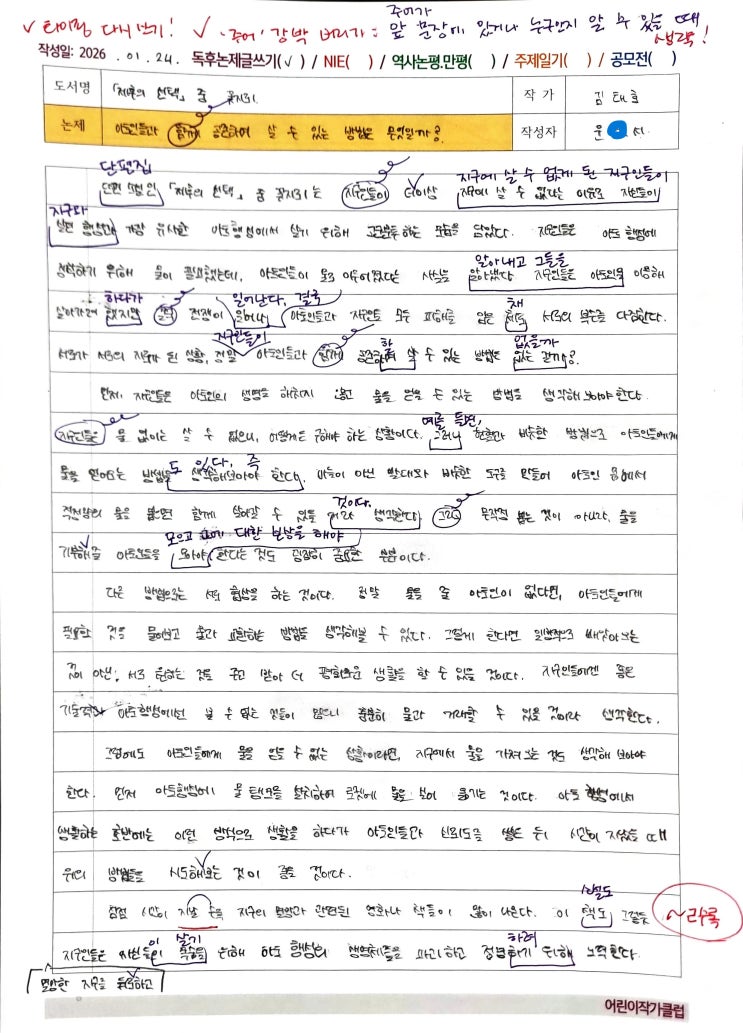 ✓ 타이핑 다시 쓰기! ✓ '주어' 강박 버리기 : 주어가 앞 문장에 있거나 누구인지 알 수 있을 때 생략!
작성일: 2026 . 01 . 24. 독후논제글쓰기(✓) / NIE( ) / 역사논평.만평( ) / 주제일기( ) / 공모전( )
도서명 「최후의 선택」 중 작 가 김태호
논제 아토인들과 함께 공존하여 살 수 있는 방법은 무엇일까?. 작성자 윤 서
단편집 지구에 살 수 없게 된 지구인들이
단편 소설인 「최후의 선택」 중 는 지구인들이 더이상 지구에 살 수 없다는 이유로 지구인들이
지구와
살던 행성과 가장 유사한 아토행성에서 살기 위해 고군분투하는 모습을 담았다. 지구인들은 아토 행성에
알아내고 그들을
정착하기 위해 물이 필요했는데, 아토인들이 물로 이루어졌다는 사실을 알아냈다 지구인들은 아토인을 이용해
하다가 일어난다, 결국 채
살아가려 했지만 전쟁이 일어나 아토인들과 지구인 모두 피해를 입은 서로의 복수를 다짐한다.
지구인들이 하 없을까
서로가 서로의 지구가 된 상황, 정말 아토인들과 함께 공존하여 살 수 있는 방법은 없는 걸까?.
먼저, 지구인들은 아토인의 생명을 해치지 않고 물을 얻을 수 있는 방법을 생각해 보아야 한다.
예를 들면,
지구인들은 물 없이는 살 수 없으니, 어떻게든 구해야 하는 상황이다. 그러니 헌혈과 비슷한 방법으로 아토인들에게
도 있다, 즉
물을 얻어오는 방법을 생각해보아야 한다. 바늘이 아닌 빨대와 비슷한 도구를 만들어 아토인 몸에서
것이다.
적정량의 물을 뽑으면 함께 살아갈 수 있을 거라 생각한다. 그리고 무작정 뽑는 것이 아니라, 물을
모으고 그에 대한 보상을 해야
기부해줄 아토인들을 모아야 한다는 것도 굉장히 중요한 부분이다.
다른 방법으로는 서로 협상을 하는 것이다. 정말 물을 줄 아토인이 없다면, 아토인들에게
필요한 것을 물어보고 물과 교환하는 방법을 생각해볼 수 있다. 그렇게 한다면 일방적으로 빼앗아오는
것이 아닌, 서로 원하는 것을 주고 받아 더 평화로운 생활을 할 수 있을 것이다. 지구인들에겐 좋은
아토행성에선 볼 수 없는 것들이 많으니 충분히 물과 거래할 수 있을 것이라 생각한다.
그럼에도 아토인들에게 물을 얻을 수 없는 상황이라면, 지구에서 물을 가져오는 것도 생각해 보아야
한다. 먼저 아토행성에 물 탱크를 설치하여 로켓에 물을 실어 옮기는 것이다. 아토 행성에서
생활하는 초반에는 이런 방식으로 생활을 하다가 아토인들과 신뢰도를 쌓은 뒤 시간이 지났을 때
위의 방법들을 시도해보는 것이 좋을 것이다.
소설도
점점 시간이 지날 수록 지구의 멸망과 관련된 영화나 책들이 많이 나온다. 이 책도 그렇듯 ~ㄹ수록
이 살기 하려
지구인들은 자신들의 목숨을 위해 아토 행성의 생명체들을 파괴하고 정복하기 위해 노력한다.
멸망한 지구를 뒤로하고
어린이작가클럽